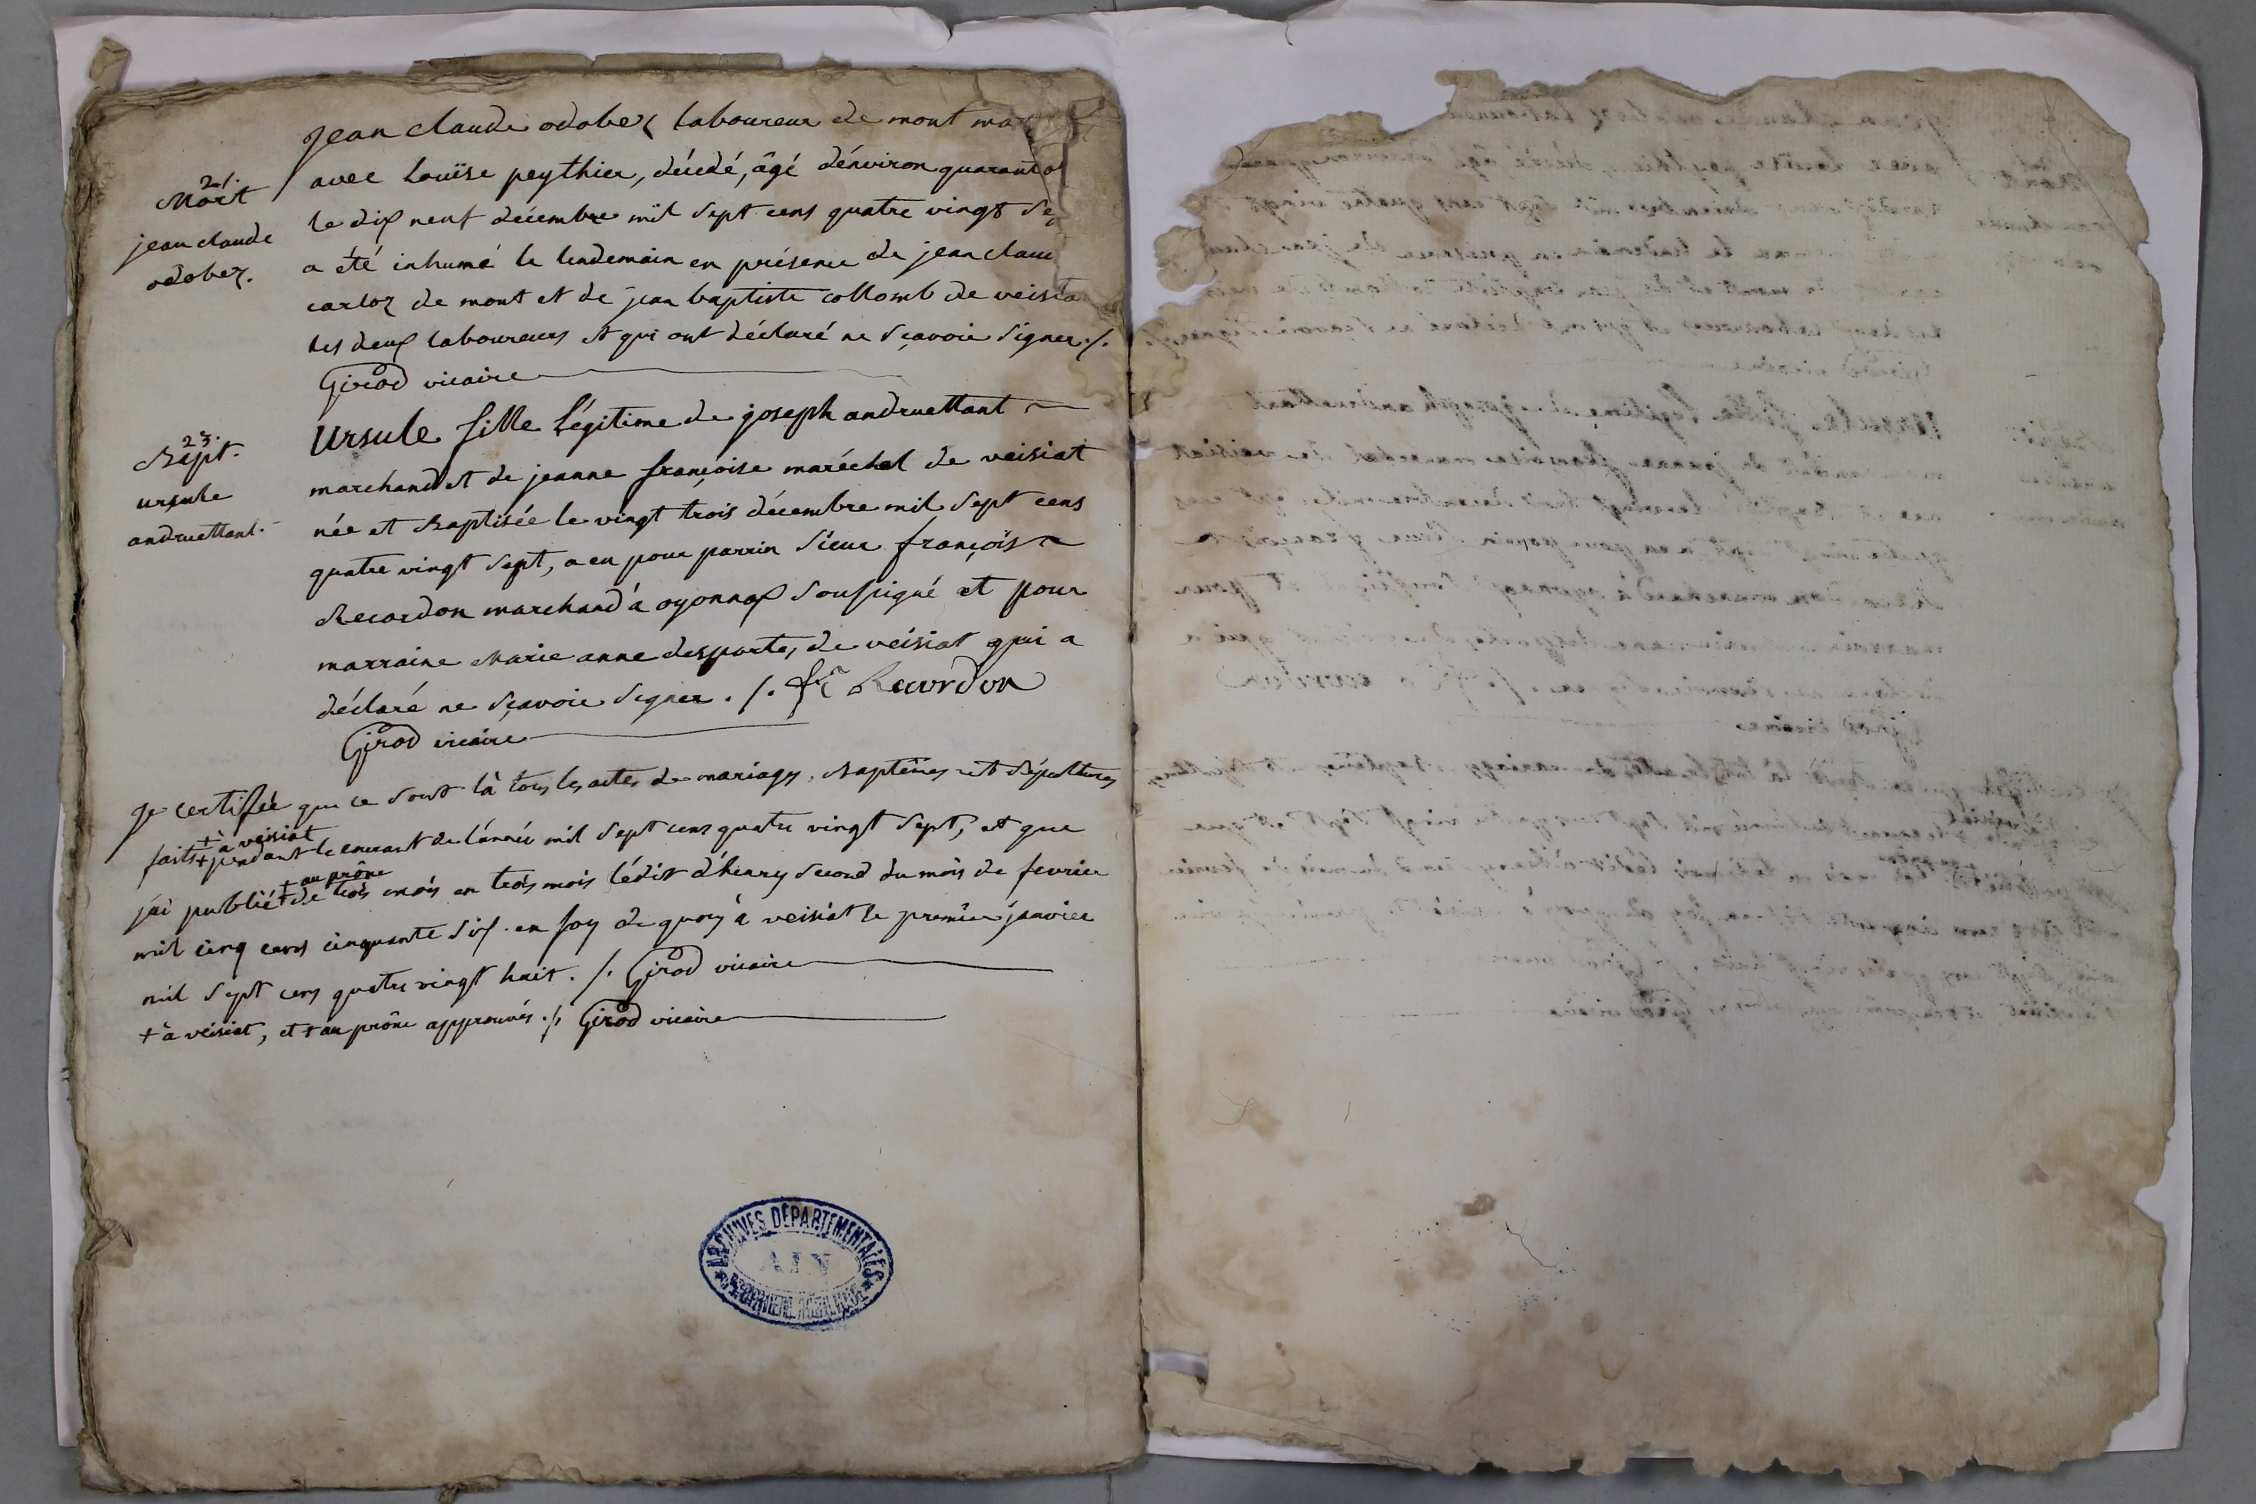 21.
Mort
jean claude
odobez.
Jean claude odobez laboureur de mont ma
avec Louïse peythier, décédé, âgé d'énviron quarant
le dix neuf décembre mil sept cens quatre vingt se
a été inhumé le lendemain en présence de jean clau
carloz de mont et de jean baptiste collomb de veisia
les deux laboureurs et qui ont déclaré ne sçavoir signer ./.
Girod vicaire
23.
Bapt.
ursule
andruettant.
Ursule fille légitime de joseph andruettant
marchand et de jeanne françoise maréchal de veisiat
née et Baptisée le vingt trois décembre mil sept cens
quatre vingt sept, a eu pour parrin sieur françois
Recordon marchand à oyonnax soussigné et pour
marraine Marie anne desporte, de veisiat qui a
déclaré ne sçavoir signer ./. fr Recordon
Girod vicaire
Je certifie que ce sont là tous les actes de mariages, Baptêmes et sépultures
+ à veisiat
faits + pendant le courant de l'année mil sept cens quatre vingt sept, et que
+ au prône
j'ai publié + de trois mois en trois mois l'édit d'henry second du mois de fevrier
mil cinq cens cinquante six. en foy de quoy à veisiat le premier janvier
mil sept cens quatre vingt huit ./. Girod vicaire
+ à veisiat, et + au prône approuvés ./. Girod vicaire
ARCHIVES DÉPARTEMENTALES
AIN